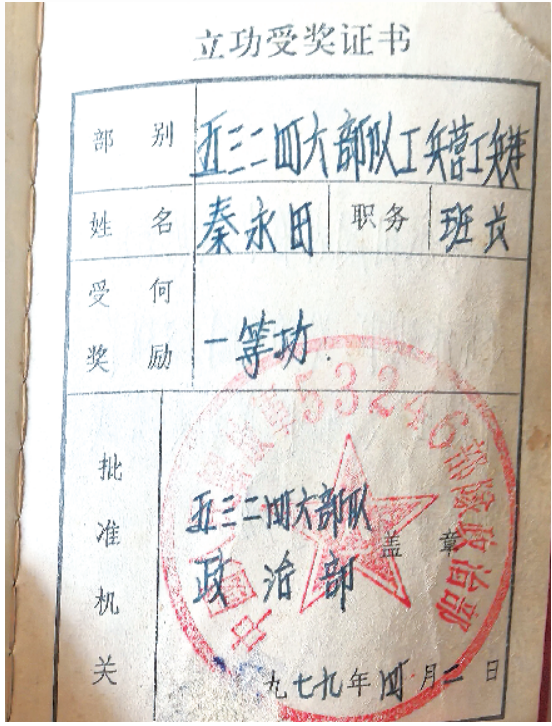 立功受奖证书
部别 五三二四六部队工兵营工兵连
姓名 秦永田 职务 班长
受何奖励 一等功
批准机关 五三二四六部队
政治部
盖章
中国人民解放军53246部队政治部
九七九年四月二日